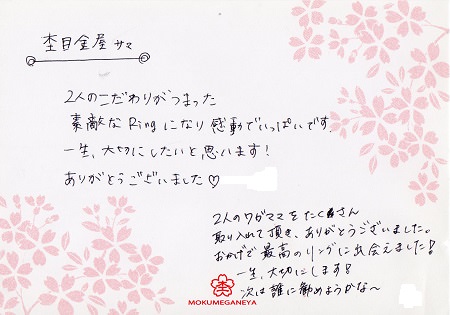 杢目金屋 サマ
2人のこだわりがつまった
素敵なRingになり感動でいっぱいです。
一生、大切にしたいと思います！
ありがとうございました♡
2人のワガママをたくさん
取り入れて頂き、ありがとうございました。
おかげで最高のリングに出会えました！
一生、大切にします！
次は誰に勧めようかな〜
MOKUMEGANEYA